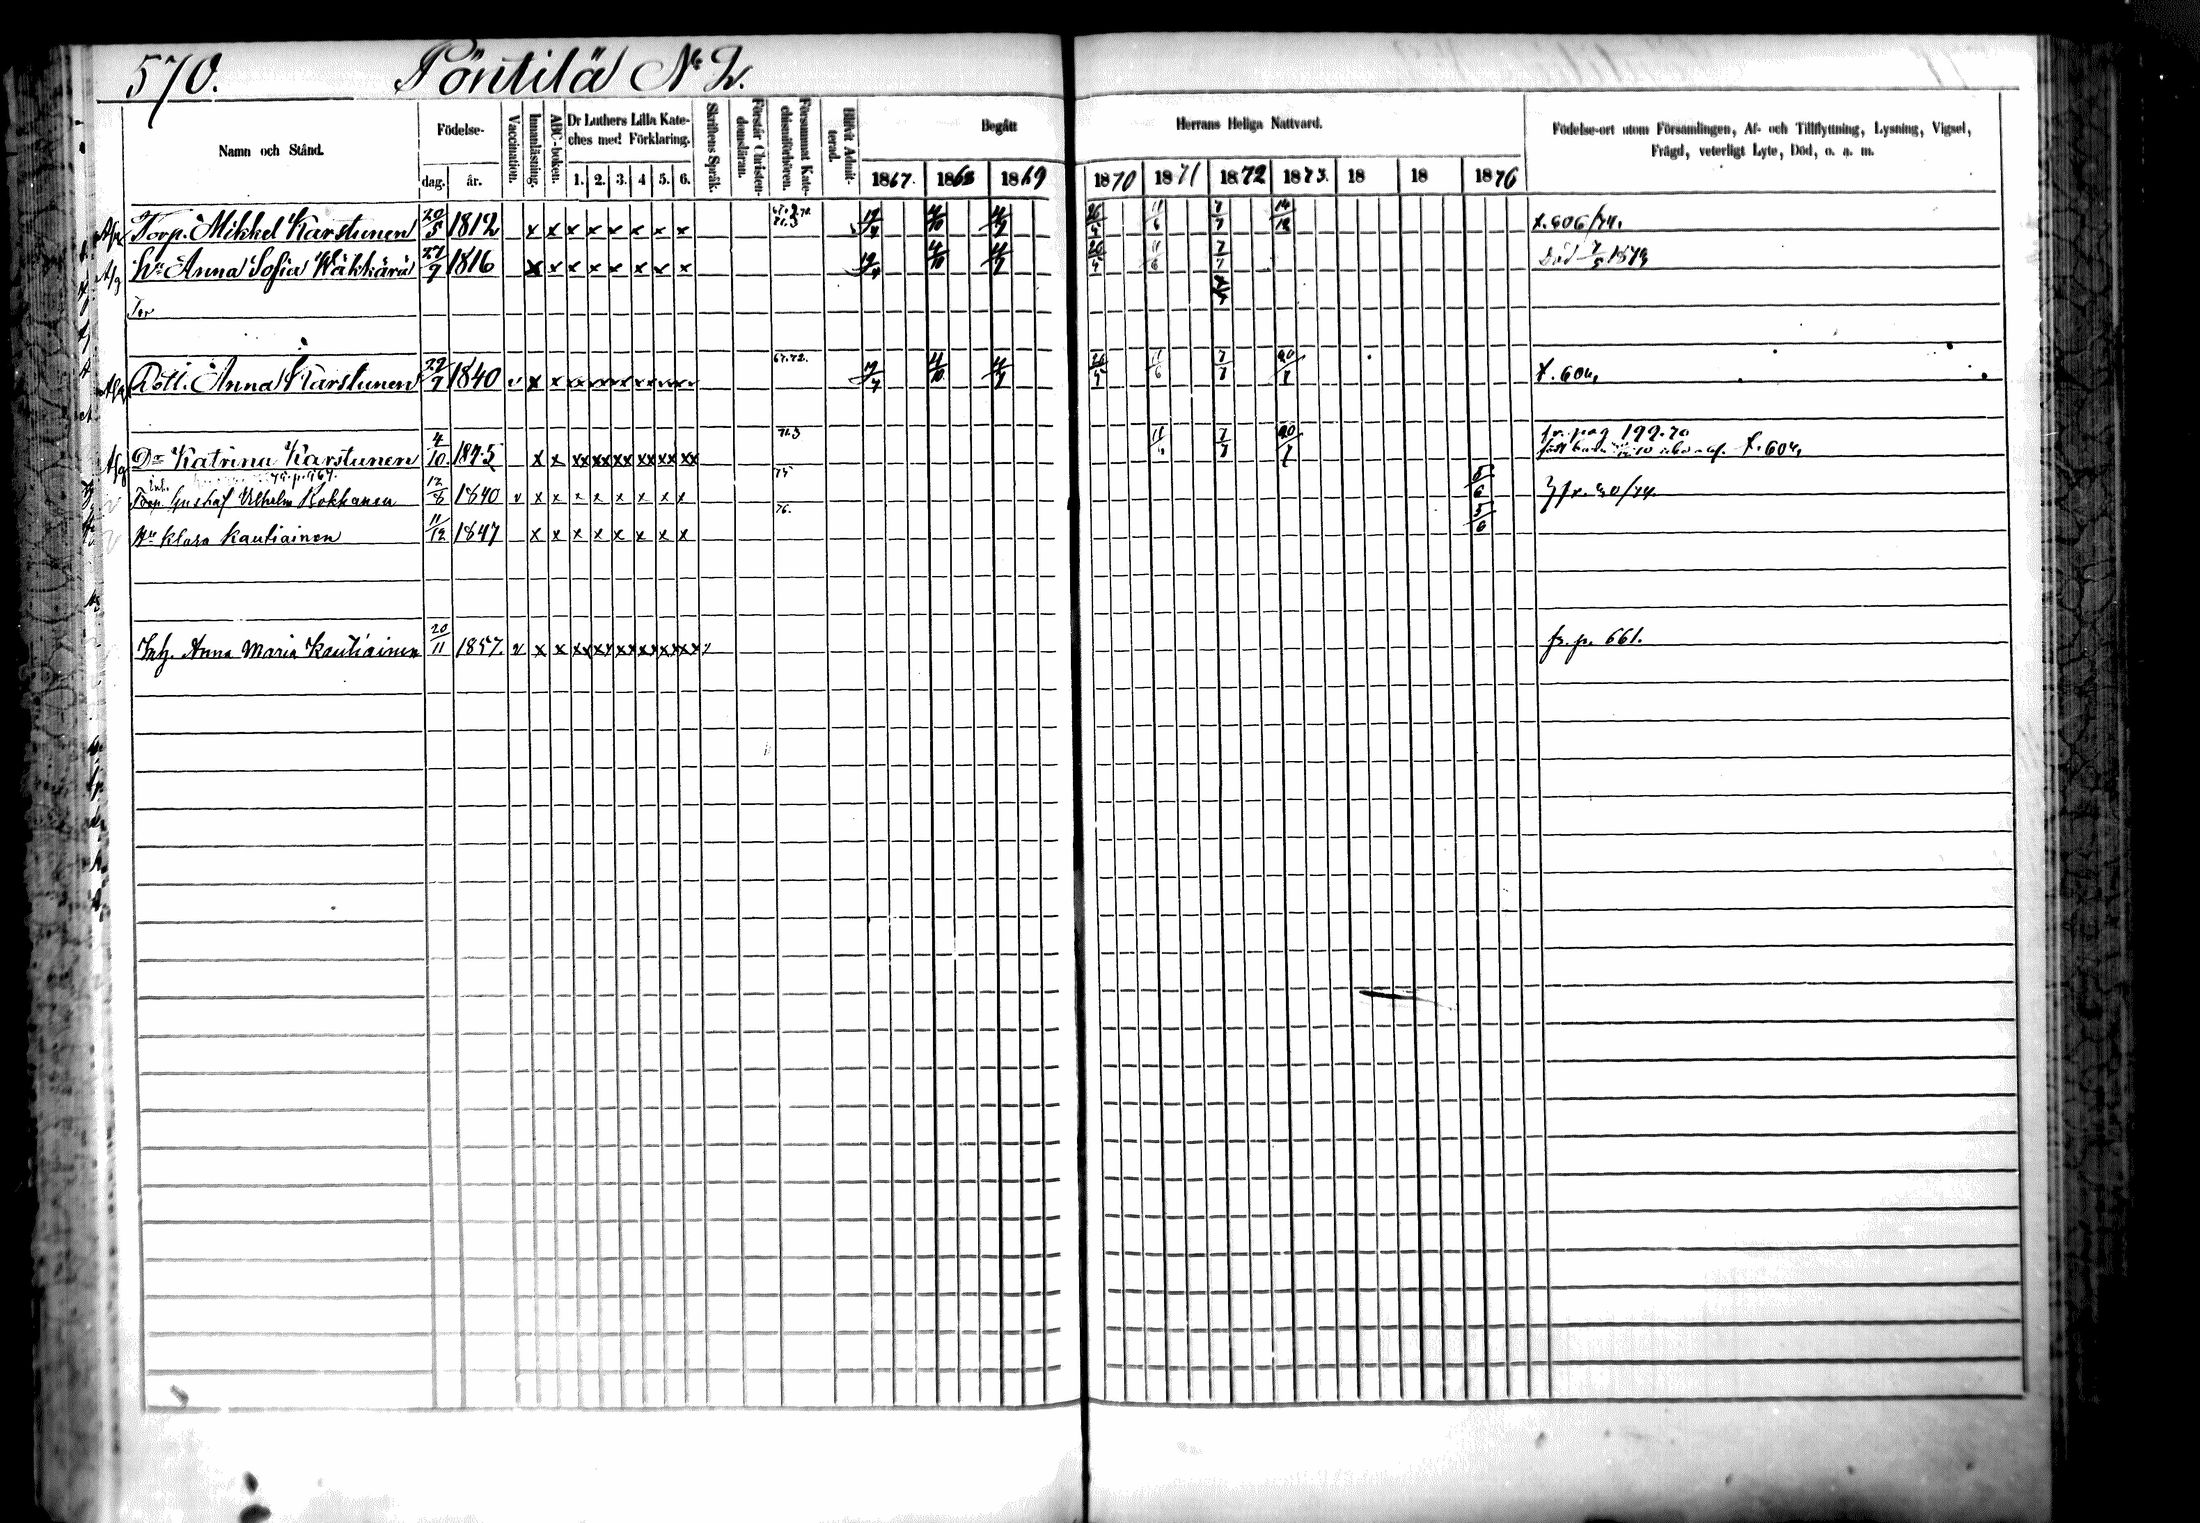 570. Pöntilä No 2.
Namn och Stånd.
Födelse-
dag. år.
Vaccination.
Innanläsning.
ABC-boken.
Dr Luthers Lilla Kate-
ches med Förklaring.
1. 2. 3. 4 5. 6.
Skriftens Språk.
Förstår Christen-
domsläran.
Försummat Kate-
chismiförhören.
Blifvit Admit-
terad.
Begått Herrans Heliga Nattvard.
1867. 1868 1869 1870 1871 1872 1873. 18 18 1876
Födelse-ort utom Församlingen, Af- och Tillflyttning, Lysning, Vigsel,
Frägd, veterligt Lyte, Död, o. a. m.
Torp. Mikkel Karstunen 20/5 1812 x x x x x x x x 4/10 4/7 26/4 11/6 7/7 14/12 t. 606/74.
Hu Anna Sofia Kähkärä 27/9 1816 x x x x x x x x 4/10 4/7 26/4 11/6 7/7 Död 7/5 1873
Tor
Dott. Anna Karstunen 22/7 1840 v x x 67.72. 4/10 4/7 26/4 11/6 7/7 t. 604.
Dr Katrina Karstunen 4/10 1845 x x xx xx xx xx xx xx 71.3 11/6 7/7 fr. pag 199.70
t. 604.
Torp. Gustaf Vilhelm Kokkonen 12/8 1840 v x x x x x x x x 75 5/6 fr. 30/74.
Hu Klara Kautiainen 11/12 1847 x x x x x x x x 76. 5/6
Inh. Anna Maria Kautiainen 20/11 1857 v x x xx xx xx xx xx xx fr. p. 661.